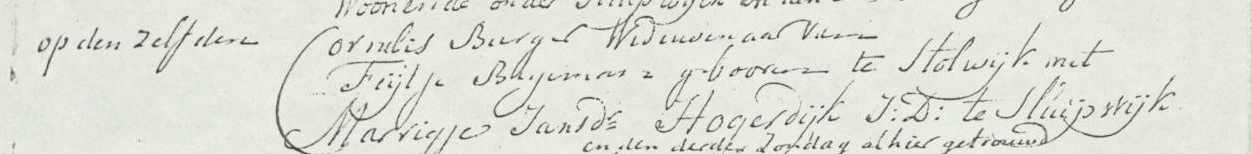 Woonende onder Sluipwijk en
op den zelfden Cornelis Burger Weduwenaar van
Feijtje Bregeman geboren te Stolwijk met
Marrigje Jansdr Hogerdijk J: D: te Sluijpwijk
en den derden Zondag alhier getrouwd